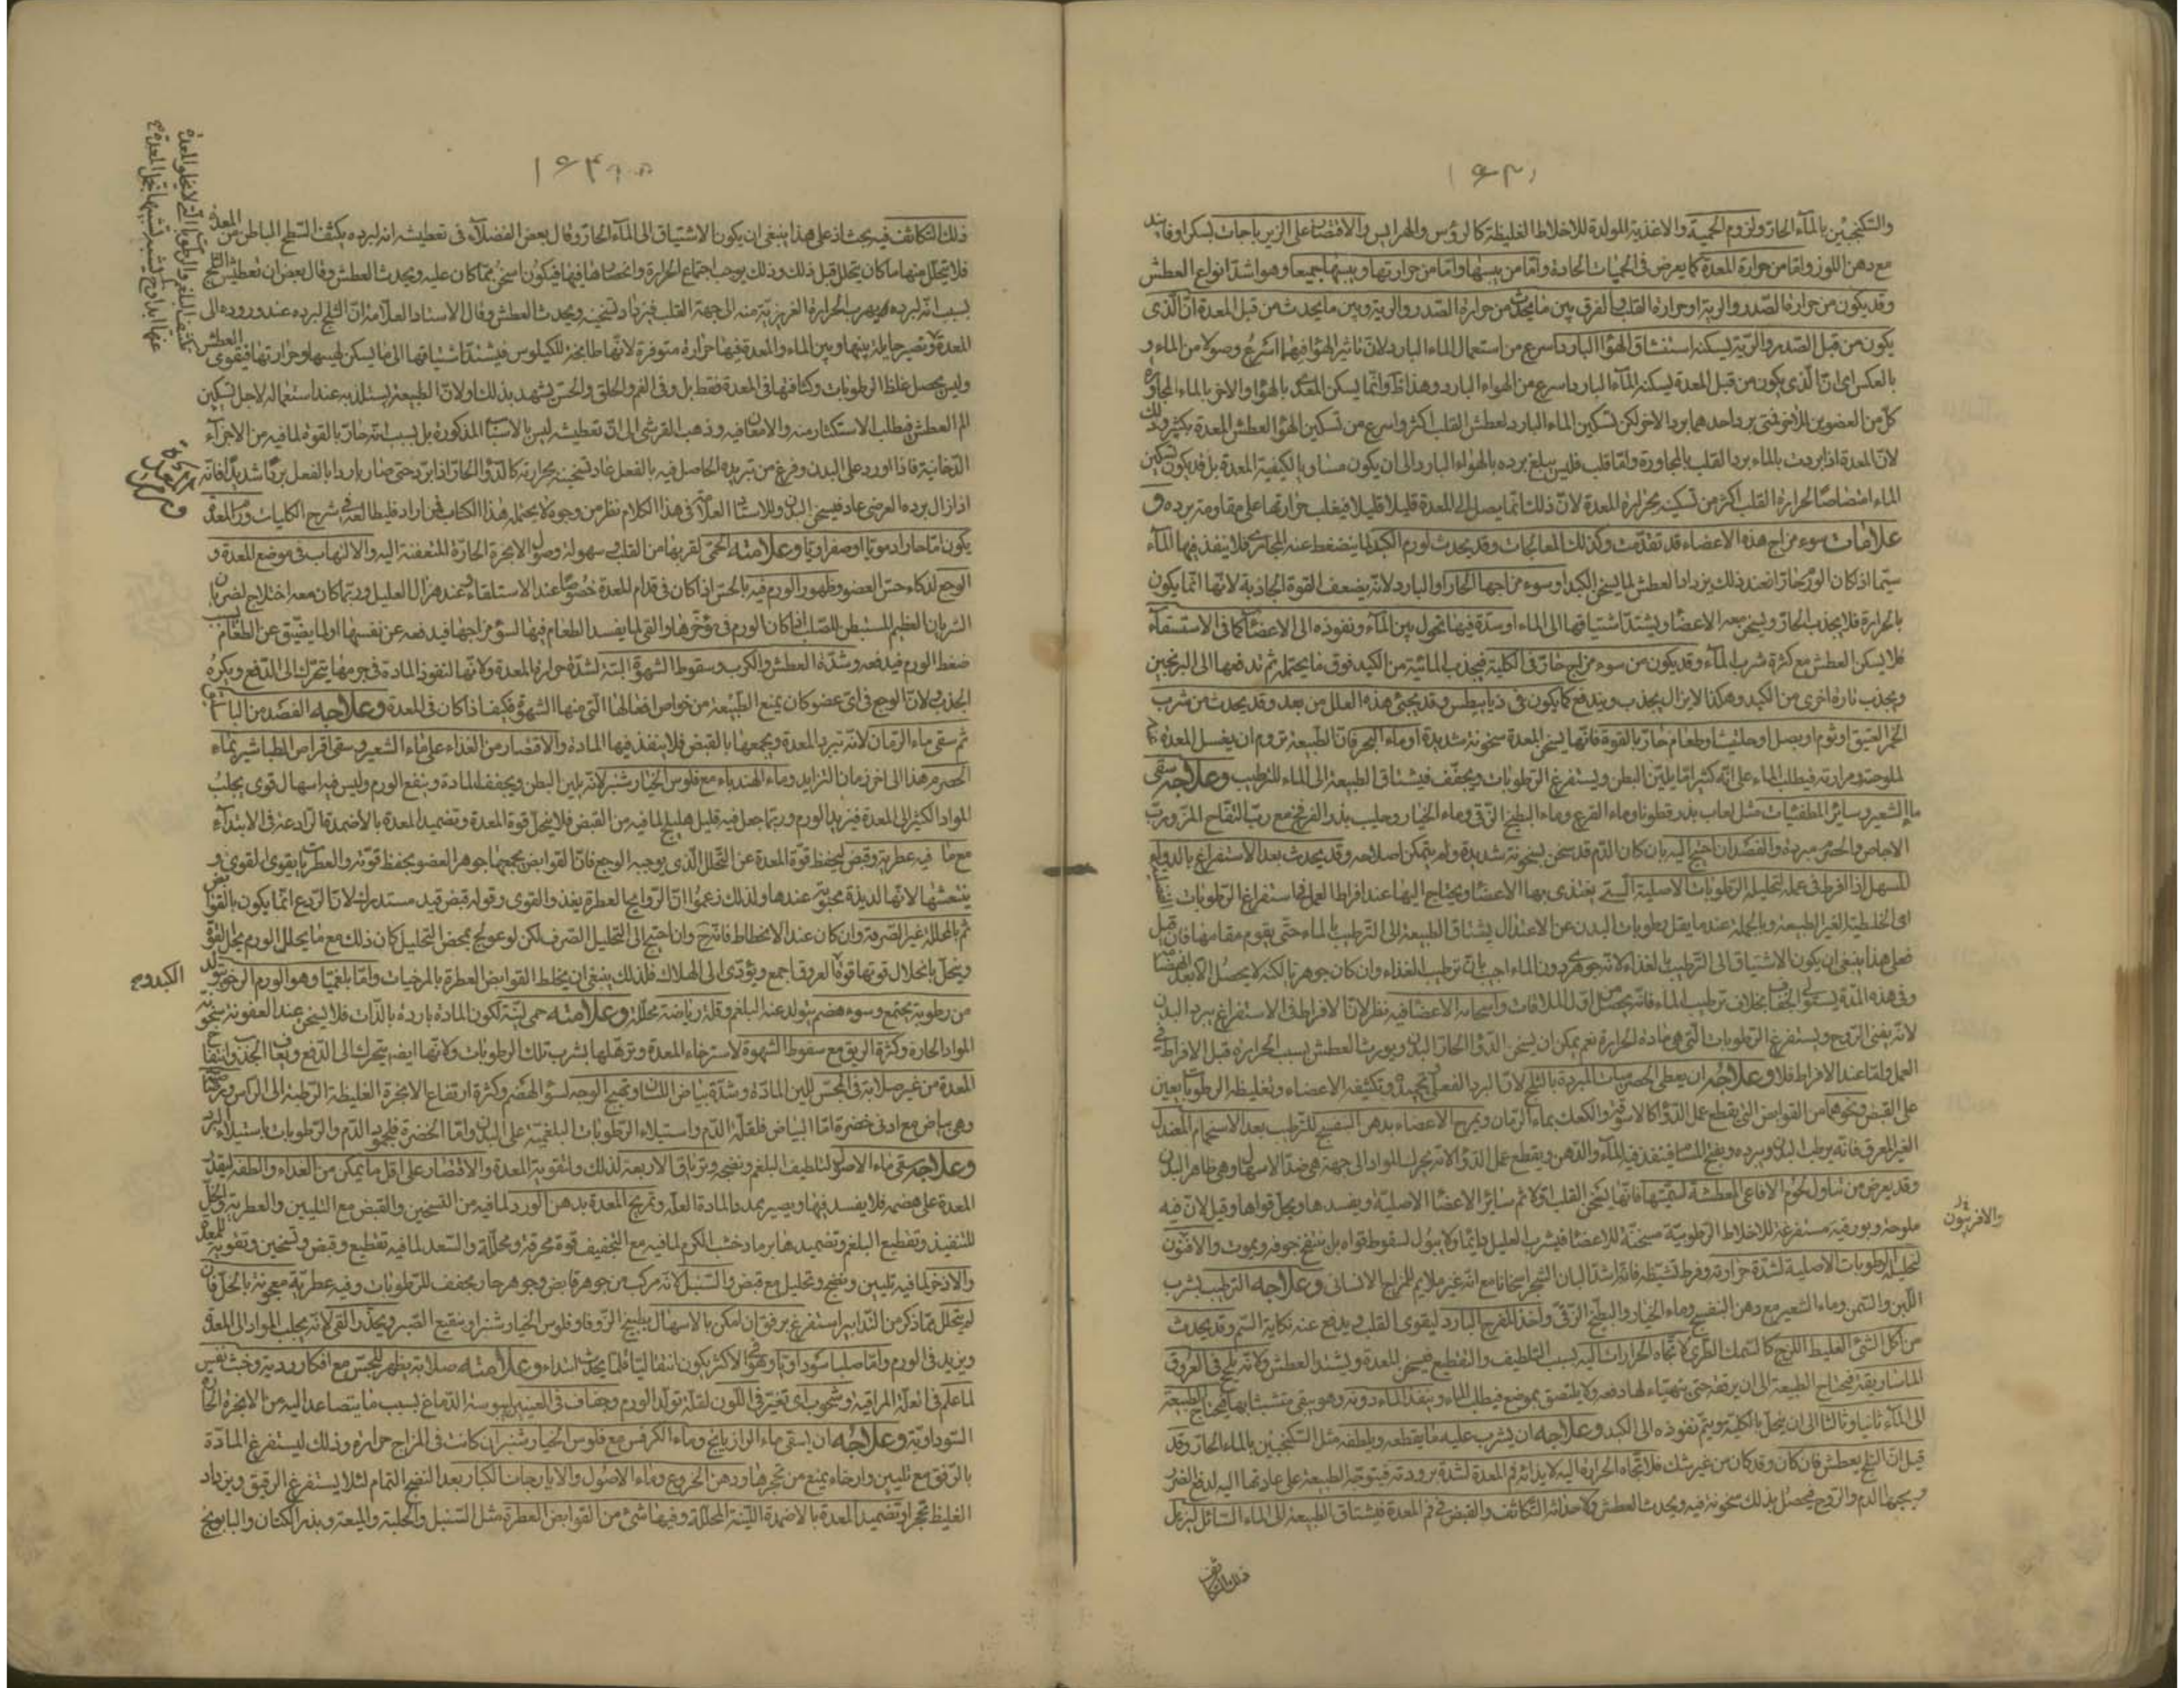 والسكنجبين بالماء الحار ولزوم الحمية والاغذية المولدة للاخلاط الغليظة كالرؤس والهرايس والاقتصار على الزيرباجات بسكر او فانيد
مع دهن اللوز واما من حرارة المعدة كما يعرض فى الحميات الحادة واما من يبسها واما من حرارتها ويبسها جميعا وهو اشد انواع العطش
وقد يكون من حرارة الصدر والرية او حرارة القلب والفرق بين ما يحدث من حرارة الصدر والرية وبين ما يحدث من قبل المعدة ان الذى
يكون من قبل الصدر والرية يسكنه استنشاق الهواء البارد اسرع من استعمال الماء البارد لان تاثير الهواء فيهما اسرع وصولا من الماء و
بالعكس اى ان الذى يكون من قبل المعدة يسكنه الماء البارد اسرع من الهواء البارد وهذا وانما يسكن المعدة بالهواء والاخر بالماء لمجاورة
كل من العضوين للاخر فمتى برد احدهما برد الاخر لكن تسكين الماء البارد لعطش القلب اكثر واسرع من تسكين الهواء لعطش المعدة بكثير وذلك
لان المعدة اذا بردت بالماء برد القلب بالمجاورة واما قلب فليس يبلغ برده بالهواء البارد الى ان يكون مساويا لكيفية المعدة بل قد يكون تسكين
الماء امتصاصا لحرارة القلب اكثر من تسكينه لحرارة المعدة لان ذلك انما يصل الى المعدة قليلا قليلا فيغلب حرارتها على مقاومة برده و
علامات سوء مزاج هذه الاعضاء قد تقدمت وكذلك المعالجات وقد يحدث لورم الكبد لما ينضغط عنه المجارى فلا ينفذ فيها الماء
سيما اذا كان الورم حارا فعند ذلك يزداد العطش لما يسخن الكبد او سوء مزاجها الحار او البارد لانه يضعف القوة الجاذبة لانها انما يكون
بالحرارة فلا يجذب الحار ويسخن معه الاعضاء ويشتد اشتياقها الى الماء او سدة فيها تحول بين الماء ونفوذه الى الاعضاء كما فى الاستسقاء
فلا يسكن العطش مع كثرة شرب الماء وقد يكون من سوء مزاج حار فى الكلية فيجذب المائية من الكبد فوق ما يحتمله ثم تدفعها الى البربخين
ويجذب تارة اخرى من الكبد وهكذا لا يزال يجذب ويندفع كما يكون فى ذيابيطس وقد يجئ هذه العلل من بعد وقد يحدث من شرب
الخمر العتيق او ثوم او بصل او حلتيت او طعام حار بالقوة فانها يسخن المعدة سخونة شديدة او ماء البحر فان الطبيعة تروم ان يغسل المعدة
الملوحة ومرارته فيطلب الماء على انه كثيرا ما يلين البطن ويستفرغ الرطوبات ويجفف فيشتاق الطبيعة الى الماء للترطيب وعلاجه سقى
ماء الشعير وسائر المطفئات مثل لعاب بذر قطونا وماء القرع وماء البطيخ الزقى وماء الخيار وحليب بذر الفرفخ مع رب التفاح المز ورب
الاجاص والحصرم مبردة والفصد ان احتيج اليه بان كان الدم قد سخن سخونة شديدة ولم يتمكن اصلاحه وقد يحدث بعد الاستفراغ بالدواء
المسهل اذا افرط فى عمله لتحليله الرطوبات الاصلية التى يغتذى بها الاعضاء ويحتاج اليها عند افراط العمل فى استفراغ الرطوبات
اى الخلطية الغير الطبيعة وبالجملة عند ما يقل رطوبات البدن عن الاعتدال يشتاق الطبيعة الى الترطيب بالماء حتى يقوم مقامها فان قيل
فعلى هذا ينبغى ان يكون الاشتياق الى الترطيب بالغذاء لانه جوهرى دون الماء اجيب بان ترطيب الغذاء وان كان جوهريا لكنه لا يحصل الا بعد الهضم
وفى هذه المدة يستولى الجفاف بخلاف ترطيب الماء فانه يحصل من اول الملاقات واسخانه الاعضاء فيه نظر لان الافراط فى الاستفراغ يبرد البدن
لانه يفنى الروح ويستفرغ الرطوبات التى هى مادة الحرارة نعم يمكن ان يسخن الدواء الحار البدن ويورث العطش بسبب الحرارة قبل الافراط فى
العمل واما عند الافراط فلا وعلاجه ان يعطى الحصرميات المبردة بالثلج لان البرد الفعلى وتكثيفه الاعضاء وتغليظه الرطوبات يعين
على القبض ونحوهما من القوابض التى يقطع عمل الدواء كالاسوقة والكعك بماء الرمان ويمرخ الاعضاء بدهن البنفسج للترطيب بعد الاستحمام المعتدل
الغير المعرق فانه يرطب البدن ويبرده ويفتح المسام فينفذ فيه الماء والدهن ويقطع عمل الدواء لانه يحرك المواد الى جهة هى ضد الاسهال وهى ظاهر البدن
وقد يعرض من تناول لحوم الافاعى المعطشة لسميتها فانها يسخن القلب اولا ثم سائر الاعضاء الاصلية ويفسدها ويحل قواها وقيل لان فيه
ملوحة وبورقية مستفرغة للاخلاط الرطوبية مسخنة للاعضاء فيشرب العليل دائما ولا يبول لسقوط قواه بل ينتفخ جوفه ويموت والافيون
لتحليله الرطوبات الاصلية لشدة حرارته وفرط تشيطه فانه اشد البان الشجر اسخانا مع انه غير ملايم للمزاج الانسانى وعلاجه الترطيب بشرب
اللبن والسمن وماء الشعير مع دهن البنفسج وماء الخيار والبطيخ الزقى واخذ المفرح البارد ليقوى القلب ويدفع عنه نكاية السم وقد يحدث
من اكل الشئ الغليظ اللزج كالسمك الطرى لاتجاه الحرارات اليه بسبب التلطيف والتقطيع فيسخن المعدة ويشتد العطش ولانه يلج فى العروق
الماساريقية فيحتاج الطبيعة الى ان يرققه حتى يتهياء لها دفعه ولا يلتصق بموضع فيطلب الماء وينفذ الماء دونه وهو يبقى متشبثا بها فيحتاج الطبيعة
الى الماء ثانيا وثالثا الى ان ينحل بالكلية ويتم نفوذه الى الكبد وعلاجه ان يشرب عليه ما يقطعه ويلطفه مثل السكنجبين بالماء الحار وقد
قيل ان الثلج يعطش فان كان وقد كان من غير شك فلاتجاه الحرارة اليه لايذائه فم المعدة لشدة برودته فيتوجه الطبيعة على عادتها اليه لدفع الضرر
ويصحبها الدم والروح فيحصل بذلك سخونة فيه ويحدث العطش ولاحداثه التكاثف والقبض فى فم المعدة فيشتاق الطبيعة الى الماء السائل ليزيل
ذلك التكاثف
ذلك التكاثف فيه بحث اذ على هذا ينبغى ان يكون الاشتياق الى الماء الحار وقال بعض الفضلاء فى تعطيشه انه لبرده يكثف السطح الباطن من المعدة
فلا يتحلل منها ما كان يتحلل قبل ذلك وذلك يوجب اجتماع الحرارة وانحصارها فيها فيكون اسخن مما كان عليه ويحدث العطش وقال بعض ان تعطيش الثلج
بسبب انه لبرده يهرب الحرارة الغريزية منه الى جهة القلب فيزداد تسخينه ويحدث العطش وقال الاستاد العلامة ان الثلج لبرده عند وروده الى
المعدة وتصير حايلة بينها وبين الماء والمعدة فيها حرارة متوفرة لانها طابخة للكيلوس فيشتد اشتياقها الى ما يسكن لهيبها وحرارتها فيقوى العطش
وليس يحصل غلظ الرطوبات وكثافتها فى المعدة فقط بل وفى الفم والحلق والحس يشهد بذلك اولان الطبيعة يستلذ به عند استعماله لاجل تسكين
الم العطش فيطلب الاستكثار منه والامعان فيه وذهب القرشى الى ان تعطيشه ليس بالاسباب المذكورة بل بسبب انه حار بالقوة لما فيه من الاجزاء
الدخانية فاذا اورد على البدن وفرغ من تبريده الحاصل فيه بالفعل عاد تسخينه بحرارته كالدواء الحار اذا برد حتى صار باردا بالفعل بردا شديدا فانه
اذا زال برده العرضى عاد فيسخن البدن وللاستاد العلامة فى هذا الكلام نظر من وجوه لا يحتمله هذا الكتاب فمن اراد فليطالعه فى شرح الكليات ورم المعدة
يكون اما حارا دمويا او صفراويا وعلامته الحمى لقربها من القلب وسهولة وصول الابخرة الحارة المتعفنة اليه والالتهاب فى موضع المعدة و
الوجع لذكاء حس العضو وظهور الورم فيه بالحس اذا كان فى قدام المعدة خصوصا عند الاستلقاء وعند هزال العليل وربما كان معه اختلاج لضربان
الشريان العظيم المستبطن للصلب اذا كان الورم فى مؤخرها والقى لما يفسد الطعام فيها لسوء مزاجها فيدفعه عن نفسها اولما يضيق عن الطعام بسبب
ضغط الورم فيدفعه وشدة العطش والكرب وسقوط الشهوة البتة لشدة حرارة المعدة ولانها لنفوذ المادة فى جرمها يتحرك الى الدفع ويكره
الجذب ولان الوجع فى اى عضو كان يمنع الطبيعة من خواص افعالها التى منها الشهوة فكيف اذا كان فى المعدة وعلاجه الفصد من الباسليق
ثم سقى ماء الرمان لانه تبرد المعدة ويجمعها بالقبض فلا ينفذ فيها المادة والاقتصار من الغذاء على ماء الشعير وسقى اقراص الطباشير بماء
الحصرم هذا الى اخر زمان التزايد وماء الهندباء مع فلوس الخيار شنبر لانه يلين البطن ويجفف المادة وينفع الورم وليس فيه اسهال قوى يجلب
المواد الكثير الى المعدة فيزيد الورم وربما جعل فيه قليل هليلج لما فيه من القبض فلا ينحل قوة المعدة وتضميد المعدة بالاضمدة الرادعة فى الابتداء
مع ما فيه عطرية وقبض ليحفظ قوة المعدة عن التحلل الذى يوجبه الوجع فان القوابض يجمع جوهر العضو ويحفظ قوته والعطريات يقوى القوى و
ينعشها لانها لذيذة محبوبة عندها ولذلك زعموا ان الروايح العطرة يغذو القوى وقوله قبض قيد مستدرك لان الردع انما يكون بالقوابض
ثم بالمحللة غير الصرفة وان كان عند الانحطاط فانه وان احتيج الى التحليل الصرف لكن لو عولج بمحض التحليل كان ذلك مع ما يحلل الورم يحل القوة
وينحل بانحلال قوتها قوة العروق اجمع ويؤدى الى الهلاك فلذلك ينبغى ان يخلط القوابض العطرة بالمرخيات واما بلغميا وهو الورم الرخو يتولد
من رطوبة يجتمع وسوء هضم يتولد عنه البلغم وقلة رياضة محللة وعلامته حمى لينة لكون المادة باردة بالذات فلا يسخن عند العفونة سخونة
المواد الحارة وكثرة الريق مع سقوط الشهوة لاسترخاء المعدة وترهلها بشرب تلك الرطوبات ولانها ايضا يتحرك الى الدفع ويعاف الجذب وانتفاخ
المعدة من غير صلابة فى المجس للين المادة وشدة بياض اللسان وتهيج الوجه لسوء الهضم وكثرة ارتفاع الابخرة الغليظة الرطبة الى الراس ورصاصية
وهى بياض مع ادنى خضرة اما البياض فلقلة الدم واستيلاء الرطوبات البلغمية على البدن واما الخضرة فلجمود الدم والرطوبات باستيلاء البرد
وعلاجه سقى ماء الاصول لتلطيف البلغم ونضجه وترياق الاربعة لذلك ولتقوية المعدة والاقتصار على اقل ما يمكن من الغذاء والطفه ليقدر
المعدة على هضمه فلا يفسد فيها ويصير بمدد المادة العلة وتمريخ المعدة بدهن الورد لما فيه من التسخين والقبض مع التليين والعطرية والخل
للتنفيذ وتقطيع البلغم وتضميدها برماد خشب الكرم لما فيه مع التجفيف قوة محرقة ومحللة والسعد لما فيه تقطيع وقبض وتسخين وتقوية للمعدة
والاذخر لما فيه تليين ونضج وتحليل مع قبض والسنبل لانه مركب من جوهر قابض وجوهر حار ومجفف للرطوبات وفيه عطرية معجونة بالخل فان
لم يتحلل بما ذكر من التدابير استفرغ برفق ان امكن بالاسهال بطبيخ الزوفا وفلوس الخيار شنبر او بنقيع الصبر ويحذر القى لانه يجلب المواد الى المعدة
ويزيد فى الورم واما صلبا سوداويا وهو فى الاكثر يكون انتقاليا قلما يحدث ابتداء وعلامته صلابة يظهر للمجس مع افكار ردية وخبث نفس
لما علم فى العلة المراقية وشحوب اى تغير فى اللون لقلة تولد الدم وجفاف فى العينين ليبوسة الدماغ بسبب ما يتصاعد اليه من الابخرة الحارة
السوداوية وعلاجه ان يسقى ماء الرازيانج وماء الكرفس مع فلوس الخيار شنبر ان كانت فى المزاج حرارة وذلك ليستفرغ المادة
بالرفق مع تليين وارخاء يمنع من تحجرها ودهن الخروع وماء الاصول والايارجات الكبار بعد النضج التمام لئلا يستفرغ الرقيق ويزداد
الغليظ تحجرا وتضميد المعدة بالاضمدة اللينة المحللة وفيها شئ من القوابض العطرة مثل السنبل والحلبة والميعة وبذر الكتان والبابونج